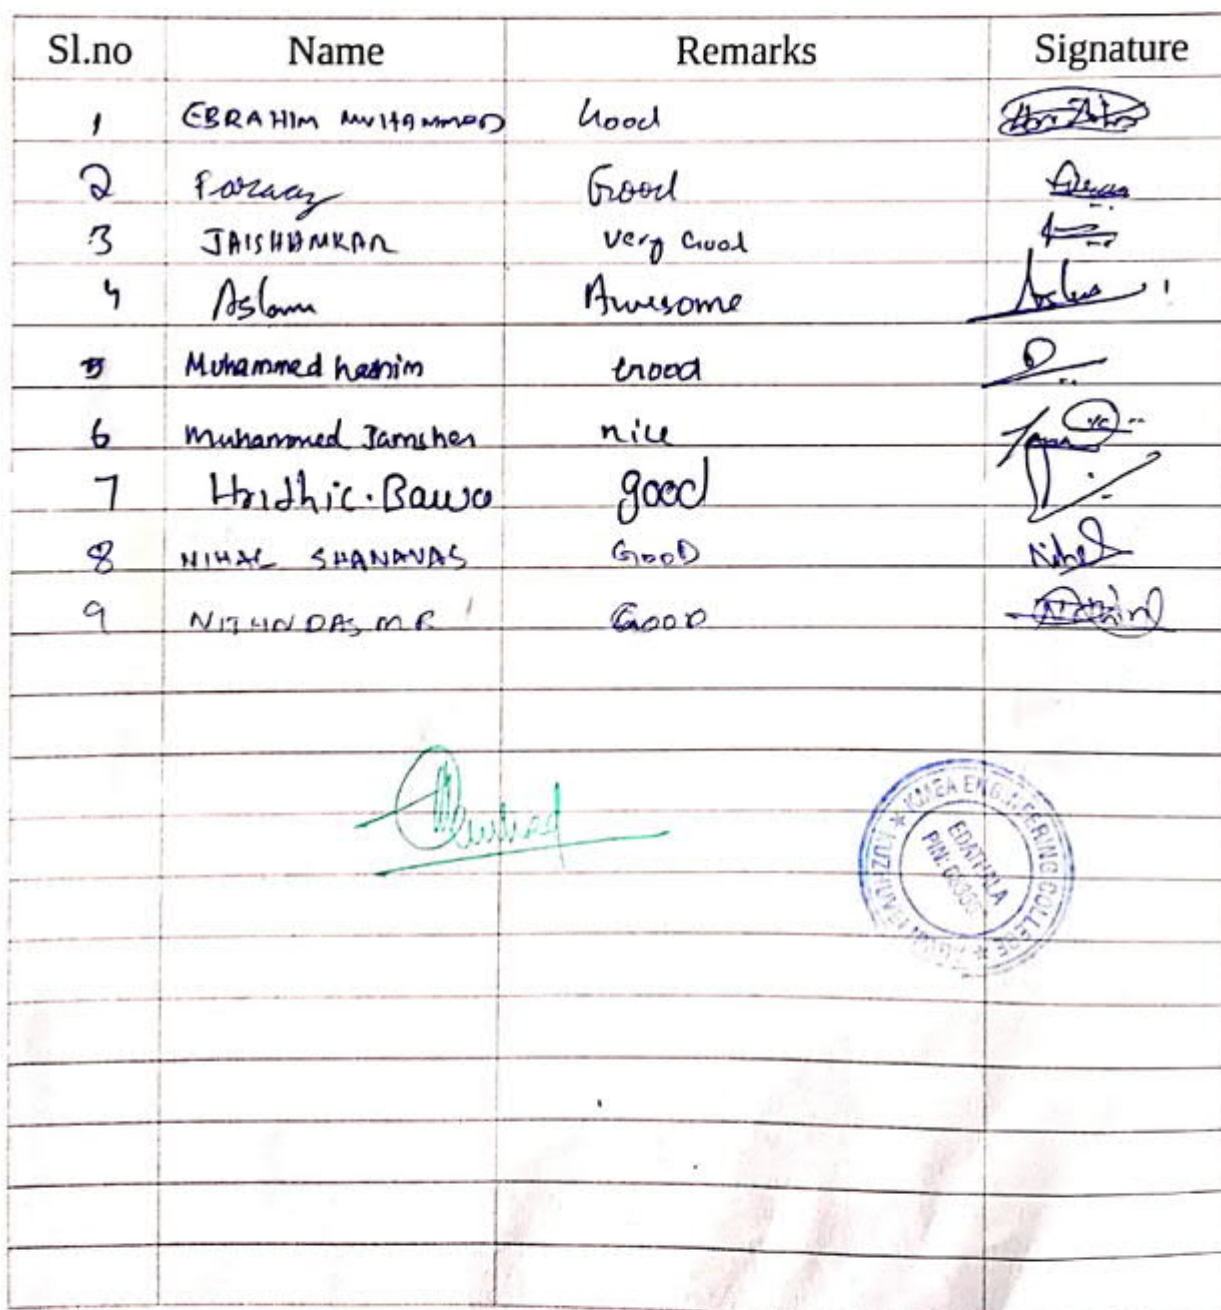 Sl.no Name Remarks Signature
1 EBRAHIM MUHAMMED Good
2 Faraaz Good
3 JAISHANKAR Very Good
4 Aslam Awesome Aslam
5 Muhammed hashim Good
6 Muhammed Jamsher nice
7 Hridhic. Bawa good
8 NIHAL SHANAVAS GOOD Nihal
9 NITHIN DAS M R GOOD
KMEA ENGINEERING COLLEGE
EDATHALA
PIN: